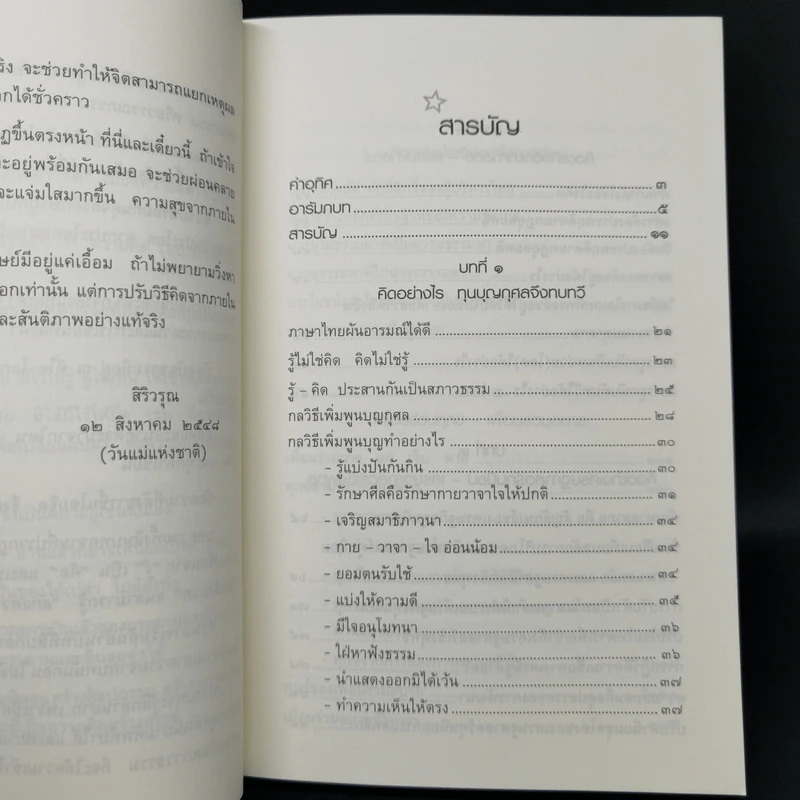 ริง จะช่วยทำให้จิตสามารถแยกเหตุผล
กได้ชั่วคราว
ฏขึ้นตรงหน้า ที่นี่และเดี๋ยวนี้ ถ้าเข้าใจ
ะอยู่พร้อมกันเสมอ จะช่วยผ่อนคลาย
จะแจ่มใสมากขึ้น ความสุขจากภายใน
ษย์มีอยู่แค่เอื้อม ถ้าไม่พยายามวิ่งหา
อกเท่านั้น แต่การปรับวิธีคิดจากภายใน
ละสันติภาพอย่างแท้จริง
สิริวรุณ
๑๒ สิงหาคม ๒๕๔๘
(วันแม่แห่งชาติ)
สารบัญ
คำอุทิศ ๓
อารัมภบท ๕
สารบัญ ๑๑
บทที่ ๑
คิดอย่างไร ทุนบุญกุศลจึงทบทวี
ภาษาไทยผันอารมณ์ได้ดี ๒๑
รู้ไม่ใช่คิด คิดไม่ใช่รู้ ๒๓
รู้ – คิด ประสานกันเป็นสภาวธรรม ๒๕
กลวิธีเพิ่มพูนบุญกุศล ๒๘
กลวิธีเพิ่มพูนบุญทำอย่างไร ๓๐
- รู้แบ่งปันกันกิน ๓๐
- รักษาศีลคือรักษากายวาจาใจให้ปกติ ๓๑
- เจริญสมาธิภาวนา ๓๔
- กาย – วาจา – ใจ อ่อนน้อม ๓๔
- ยอมตนรับใช้ ๓๔
- แบ่งให้ความดี ๓๕
- มีใจอนุโมทนา ๓๖
- ใฝ่หาฟังธรรม ๓๖
- นำแสดงออกมิได้เว้น ๓๗
- ทำความเห็นให้ตรง ๓๗